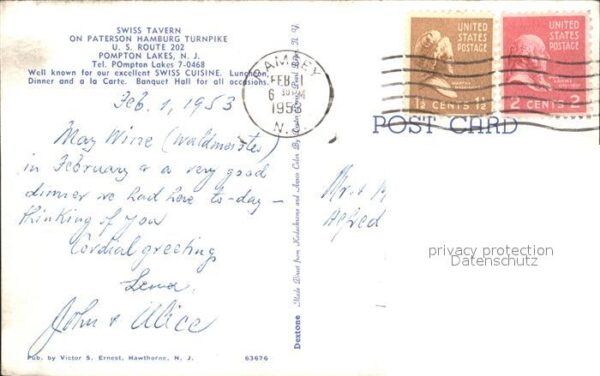 SWISS TAVERN
ON PATERSON HAMBURG TURNPIKE
U. S. ROUTE 202
POMPTON LAKES, N. J.
Tel. POmpton Lakes 7-0468
Well known for our excellent SWISS CUISINE. Luncheon,
Dinner and a la Carte. Banquet Hall for all occasions.
Feb. 1, 1953
May Wine (Waldmeister)
in February & a very good
dinner we had here to-day –
thinking of you
Cordial greetings
Lena
John & Alice
Pub. by Victor S. Ernest, Hawthorne, N. J.
63676
Dextone
Made Direct from Kodachrome and Ansco Color By
N. Y.
RAMSEY
FEB
6
1953
N.J.
UNITED
STATES
POSTAGE
1½ CENTS 1½
UNITED
STATES
POSTAGE
2 CENTS 2
POST CARD
Mr. &
Alfred
privacy protection
Datenschutz